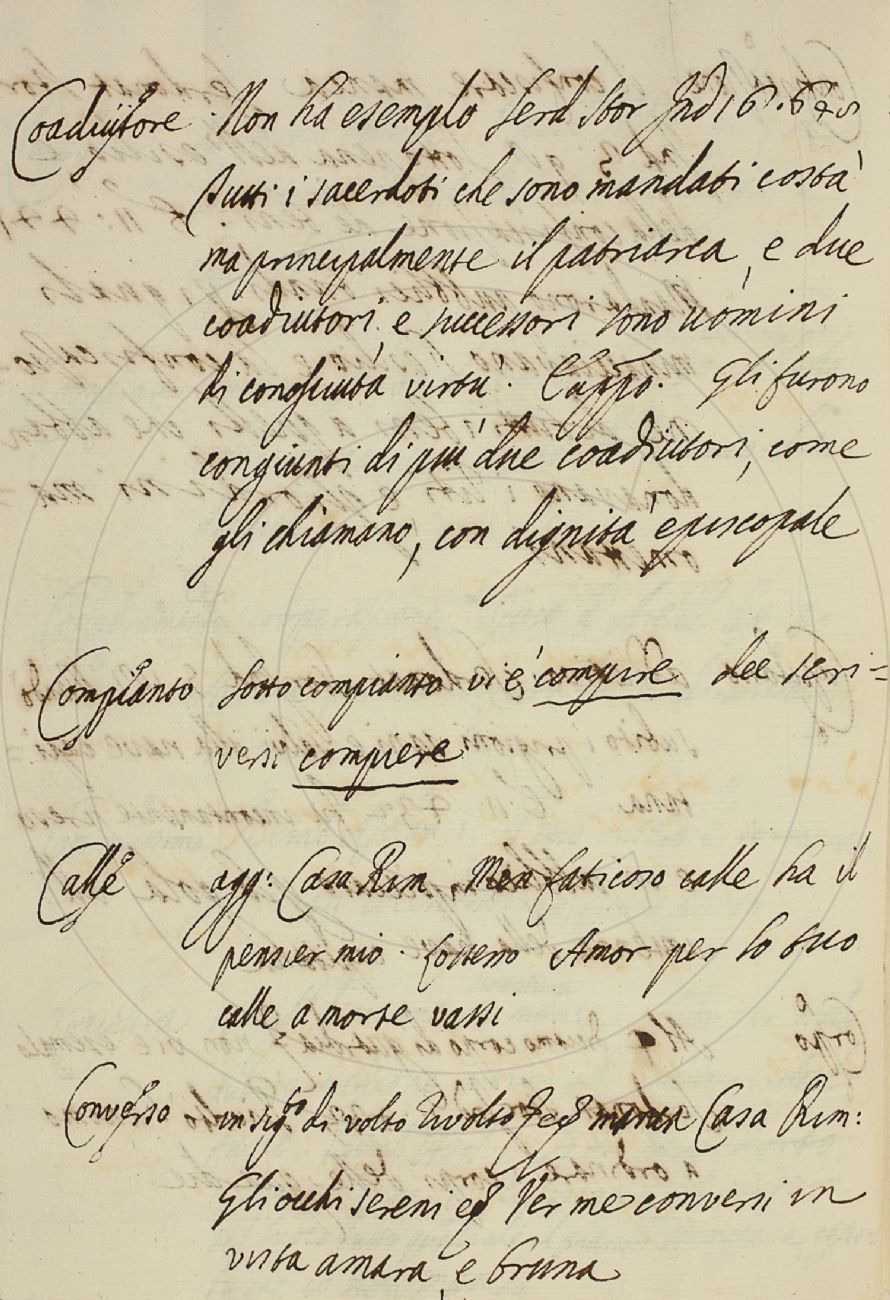 Coadiutore Non ha esempio Serd Stor Ind 16. 645
Tutti i sacerdoti che sono mandati costà
ma principalmente il patriarca, e due
coadiutori, e successori sono uomini
di conosciuta virtu'. E appo. Gli furono
congiunti di piu' due coadiutori, come
gli chiamano, con dignità episcopale
Compianto Sotto compianto vi è compire dee scri=
versi compiere
Calle agg: Casa Rim. Men faticoso calle ha il
pensier mio. Costesso Amor per lo tuo
calle a morte vassi
Converso in sigto di volto Rivolto manca Casa Rim:
Gli occhi sereni Per me conversi in
vista amara, e bruna